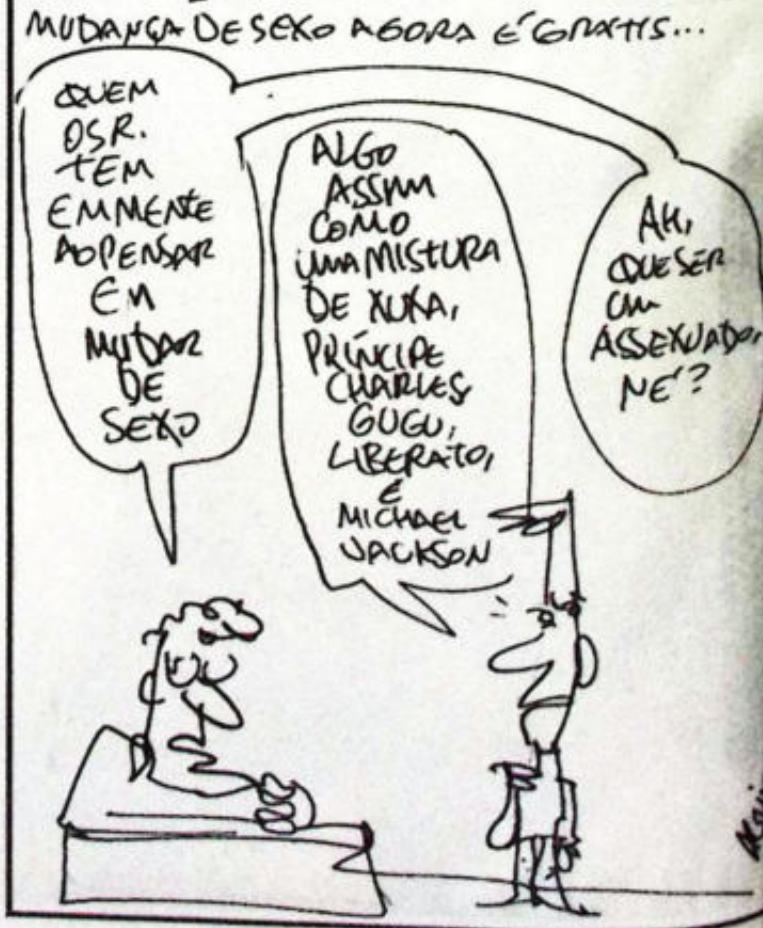 MUDANÇA DE SEXO AGORA É GRATIS...
QUEM
O SR.
TEM
EM MENTE
AO PENSAR
EM
MUDAR
DE
SEXO
ALGO
ASSIM
COMO
UMA MISTURA
DE XUXA,
PRÍNCIPE
CHARLES,
GUGU,
LIBERATO,
E
MICHAEL
JACKSON
AH,
QUE SER
UM
ASSEXUADO,
NÉ?